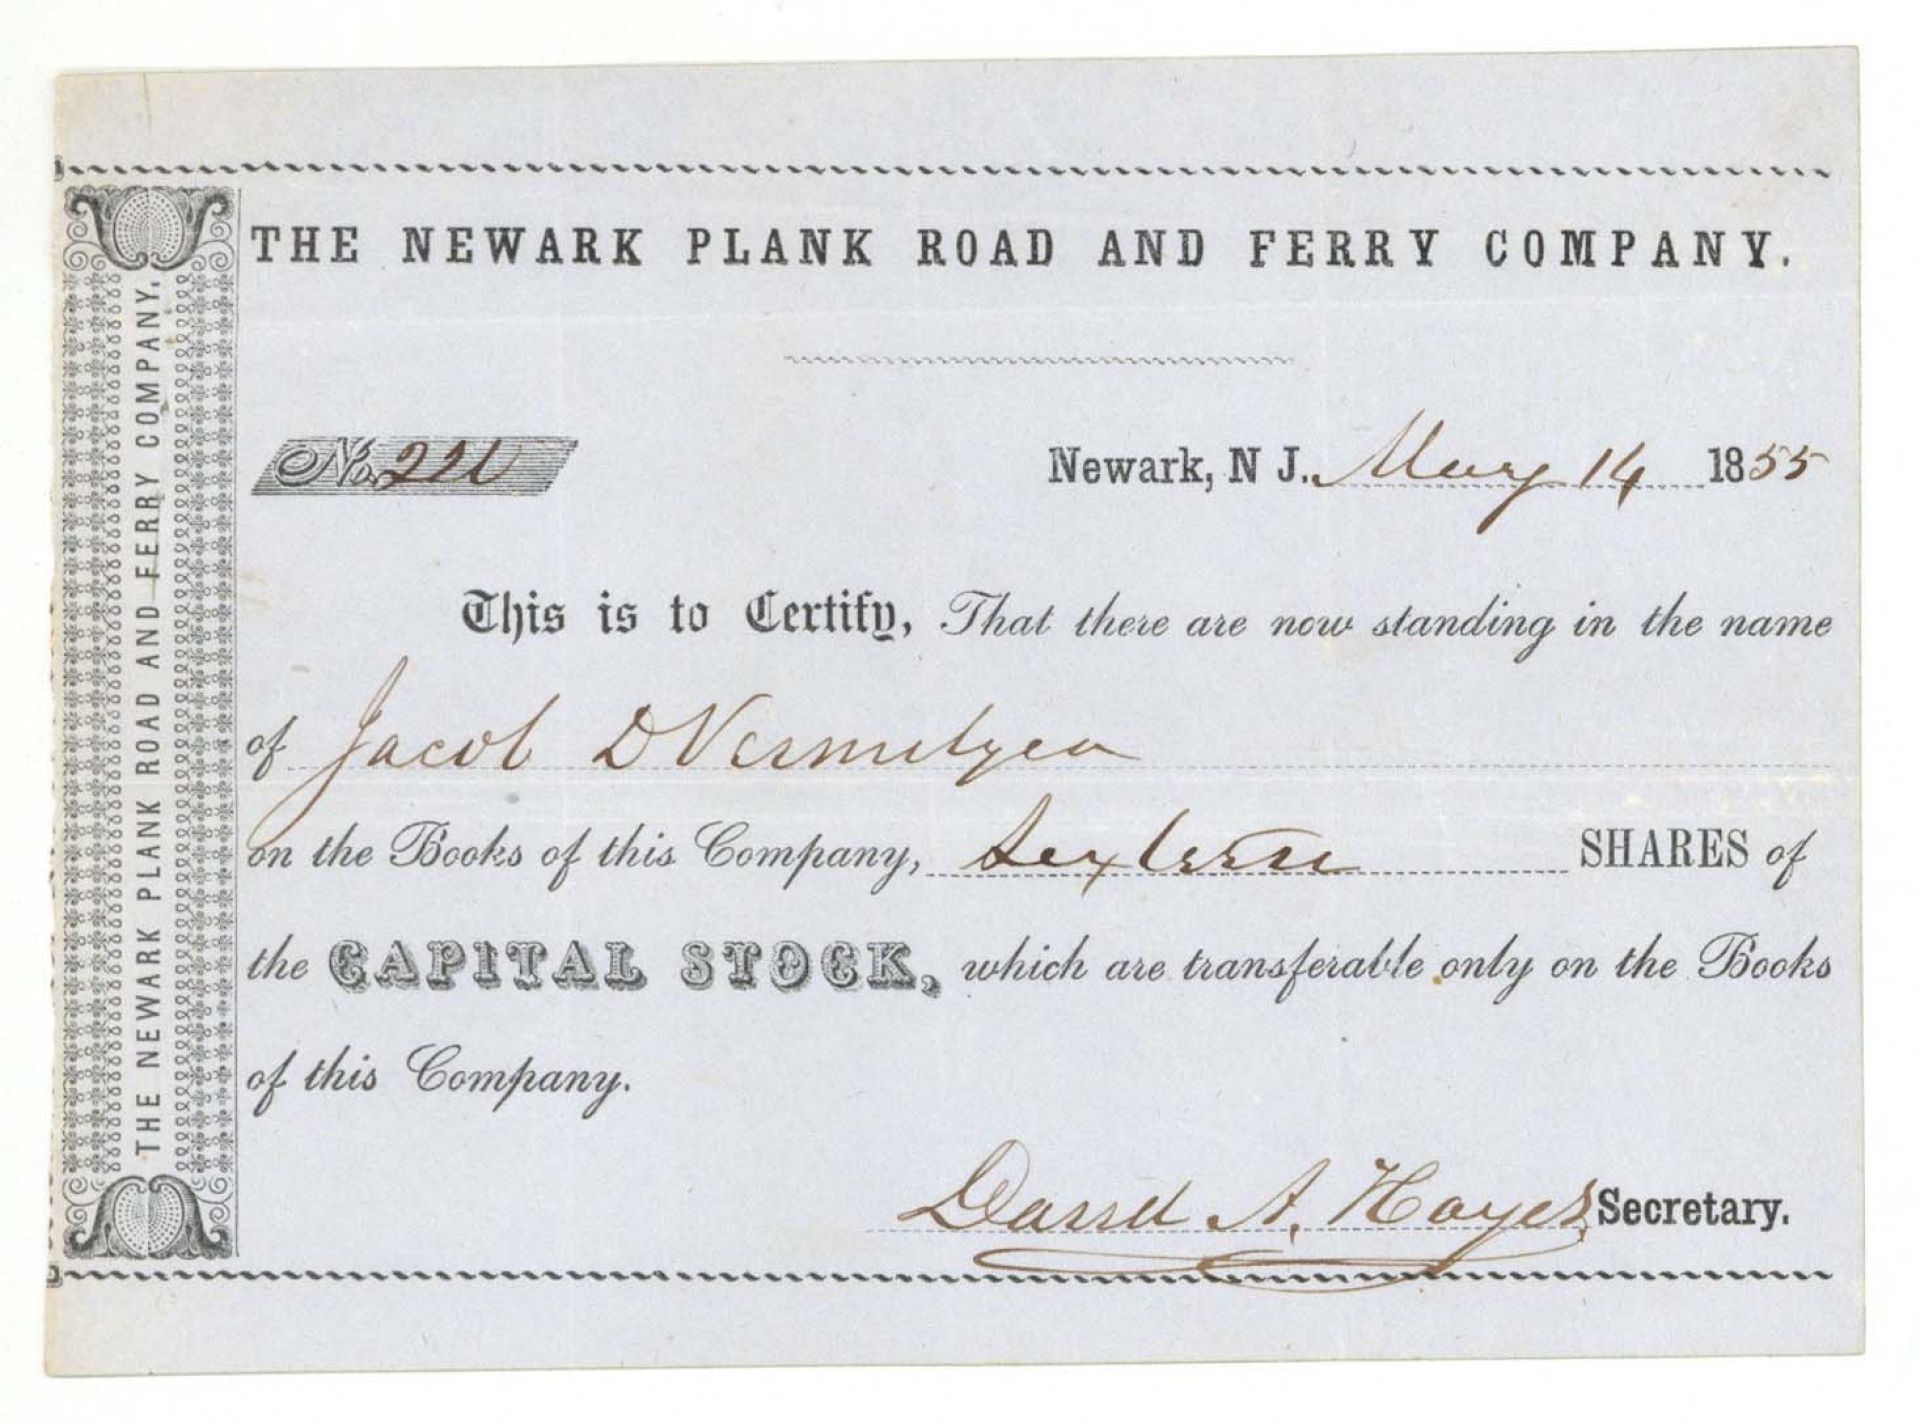 THE NEWARK PLANK ROAD AND FERRY COMPANY.
THE NEWARK PLANK ROAD AND FERRY COMPANY.
No. 220
Newark, N J. May 14 1855
This is to Certify, That there are now standing in the name
of Jacob D Vermilyea
on the Books of this Company, Sixteen SHARES of
the CAPITAL STOCK, which are transferable only on the Books
of this Company.
David A. Hayes Secretary.